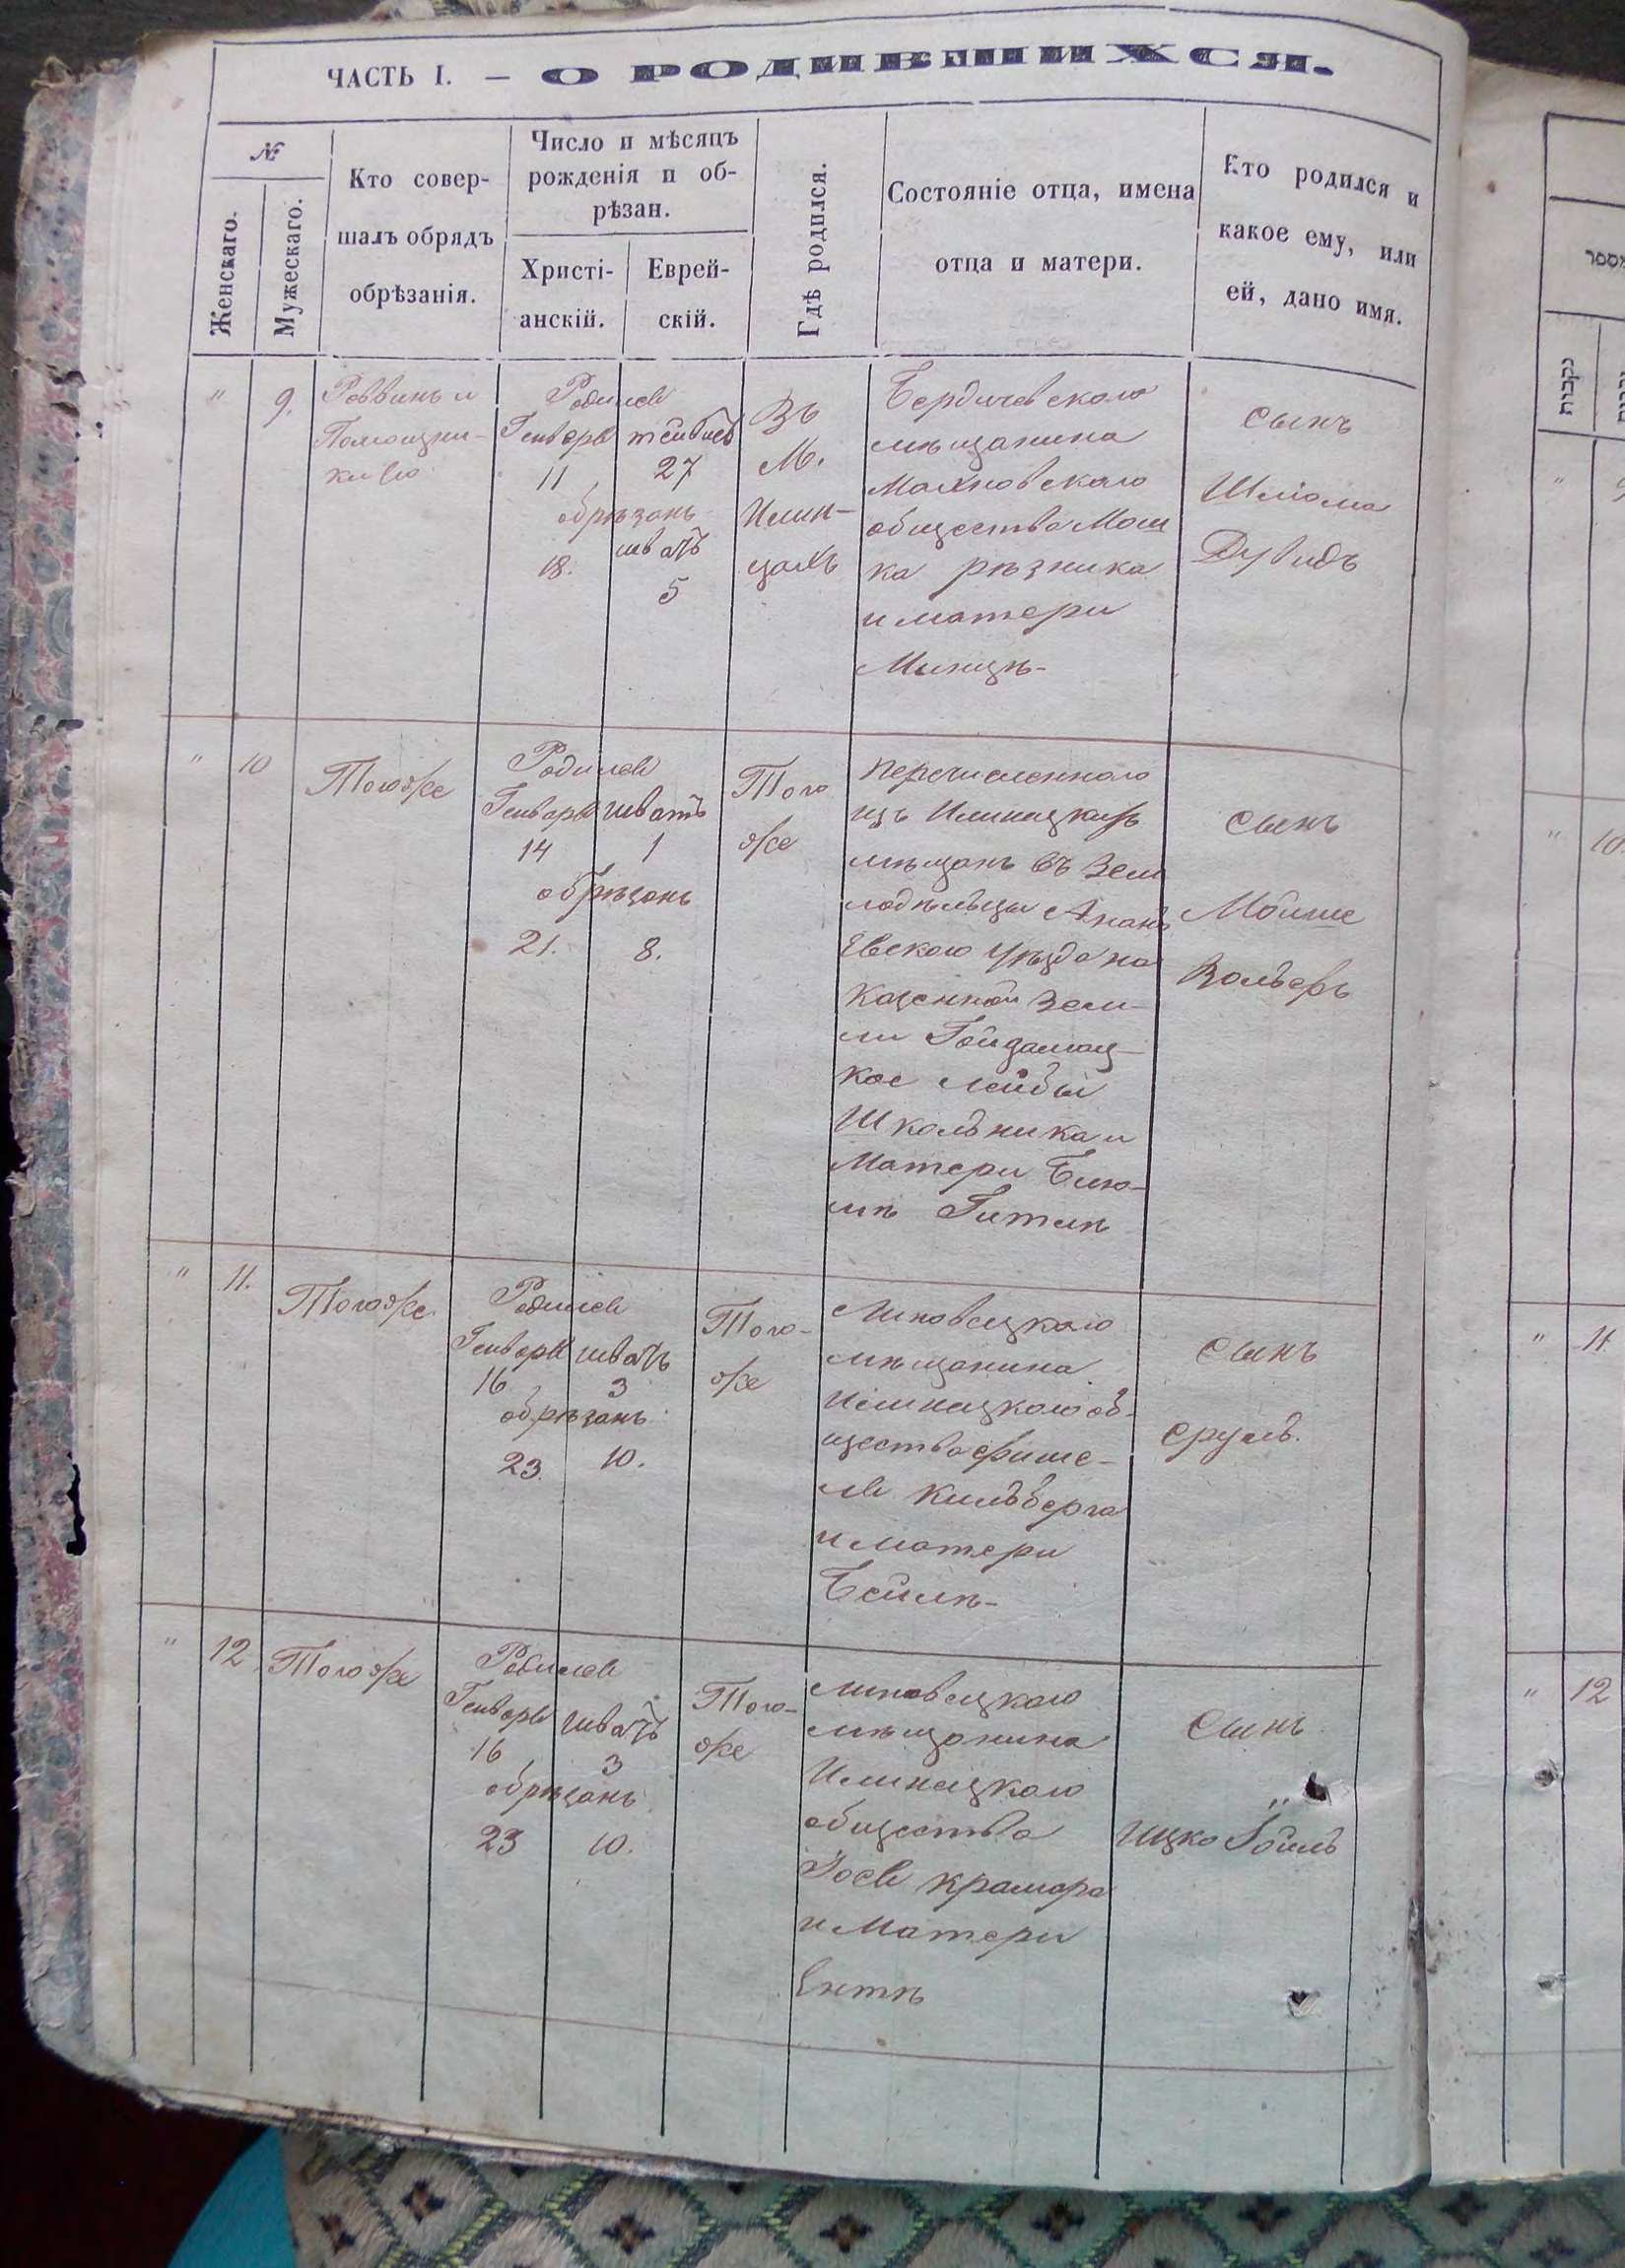 ЧАСТЬ I. — О РОДИВШИХСЯ.
№
Женскаго.
Мужескаго.
Кто совер-
шалъ обрядъ
обрѣзанія.
Число и мѣсяцъ
рожденія и об-
рѣзан.
Христі-
анскій.
Еврей-
скій.
Гдѣ родился.
Состояніе отца, имена
отца и матери.
Кто родился и
какое ему, или
ей, дано имя.
" 9.
Раввинъ и
Помощни-
Родился
Генваря
11
тейвисъ
27
обрѣзанъ
18.
шватъ
5
Въ
М.
Илин-
цахъ
Бердичевскаго
мѣщанина
Махновскаго
общества Мош
ка рѣзника
и матери
Миндѣ-
сынъ
Шлiома
Дувидъ
" 10
Тогоже
Родился
Генваря
14
шватъ
1
обрѣзанъ
21.
8.
Того
же
перечисленнаго
изъ Илинецкихъ
мѣщанъ въ Зем
ледѣльцы Анань
Евскаго уѣзда на
казенной Зем-
ли Гайдамац-
кое Лейбы
Школьника и
Матери Блю-
мѣ Гитлѣ
сынъ
Мойше
Вольѳъ
" 11.
Тогоже
Родился
Генваря
16
шватъ
3
обрѣзанъ
23.
10.
Того-
же
Липовецкаго
мѣщанина
Илинецкаго об-
щества Фише-
ля Кильберга
и матери
Бейлѣ-
сынъ
Сруль.
" 12
Тогоже
Родился
Генваря
16
шватъ
3
обрѣзанъ
23
10.
Того-
же
Липовецкаго
мѣщанина
Илинецкаго
общества
Iося Крамара
и Матери
Ентѣ
Сынъ
Ицко Iойль
מספר
נקבות
"
" 10.
" 11.
" 12